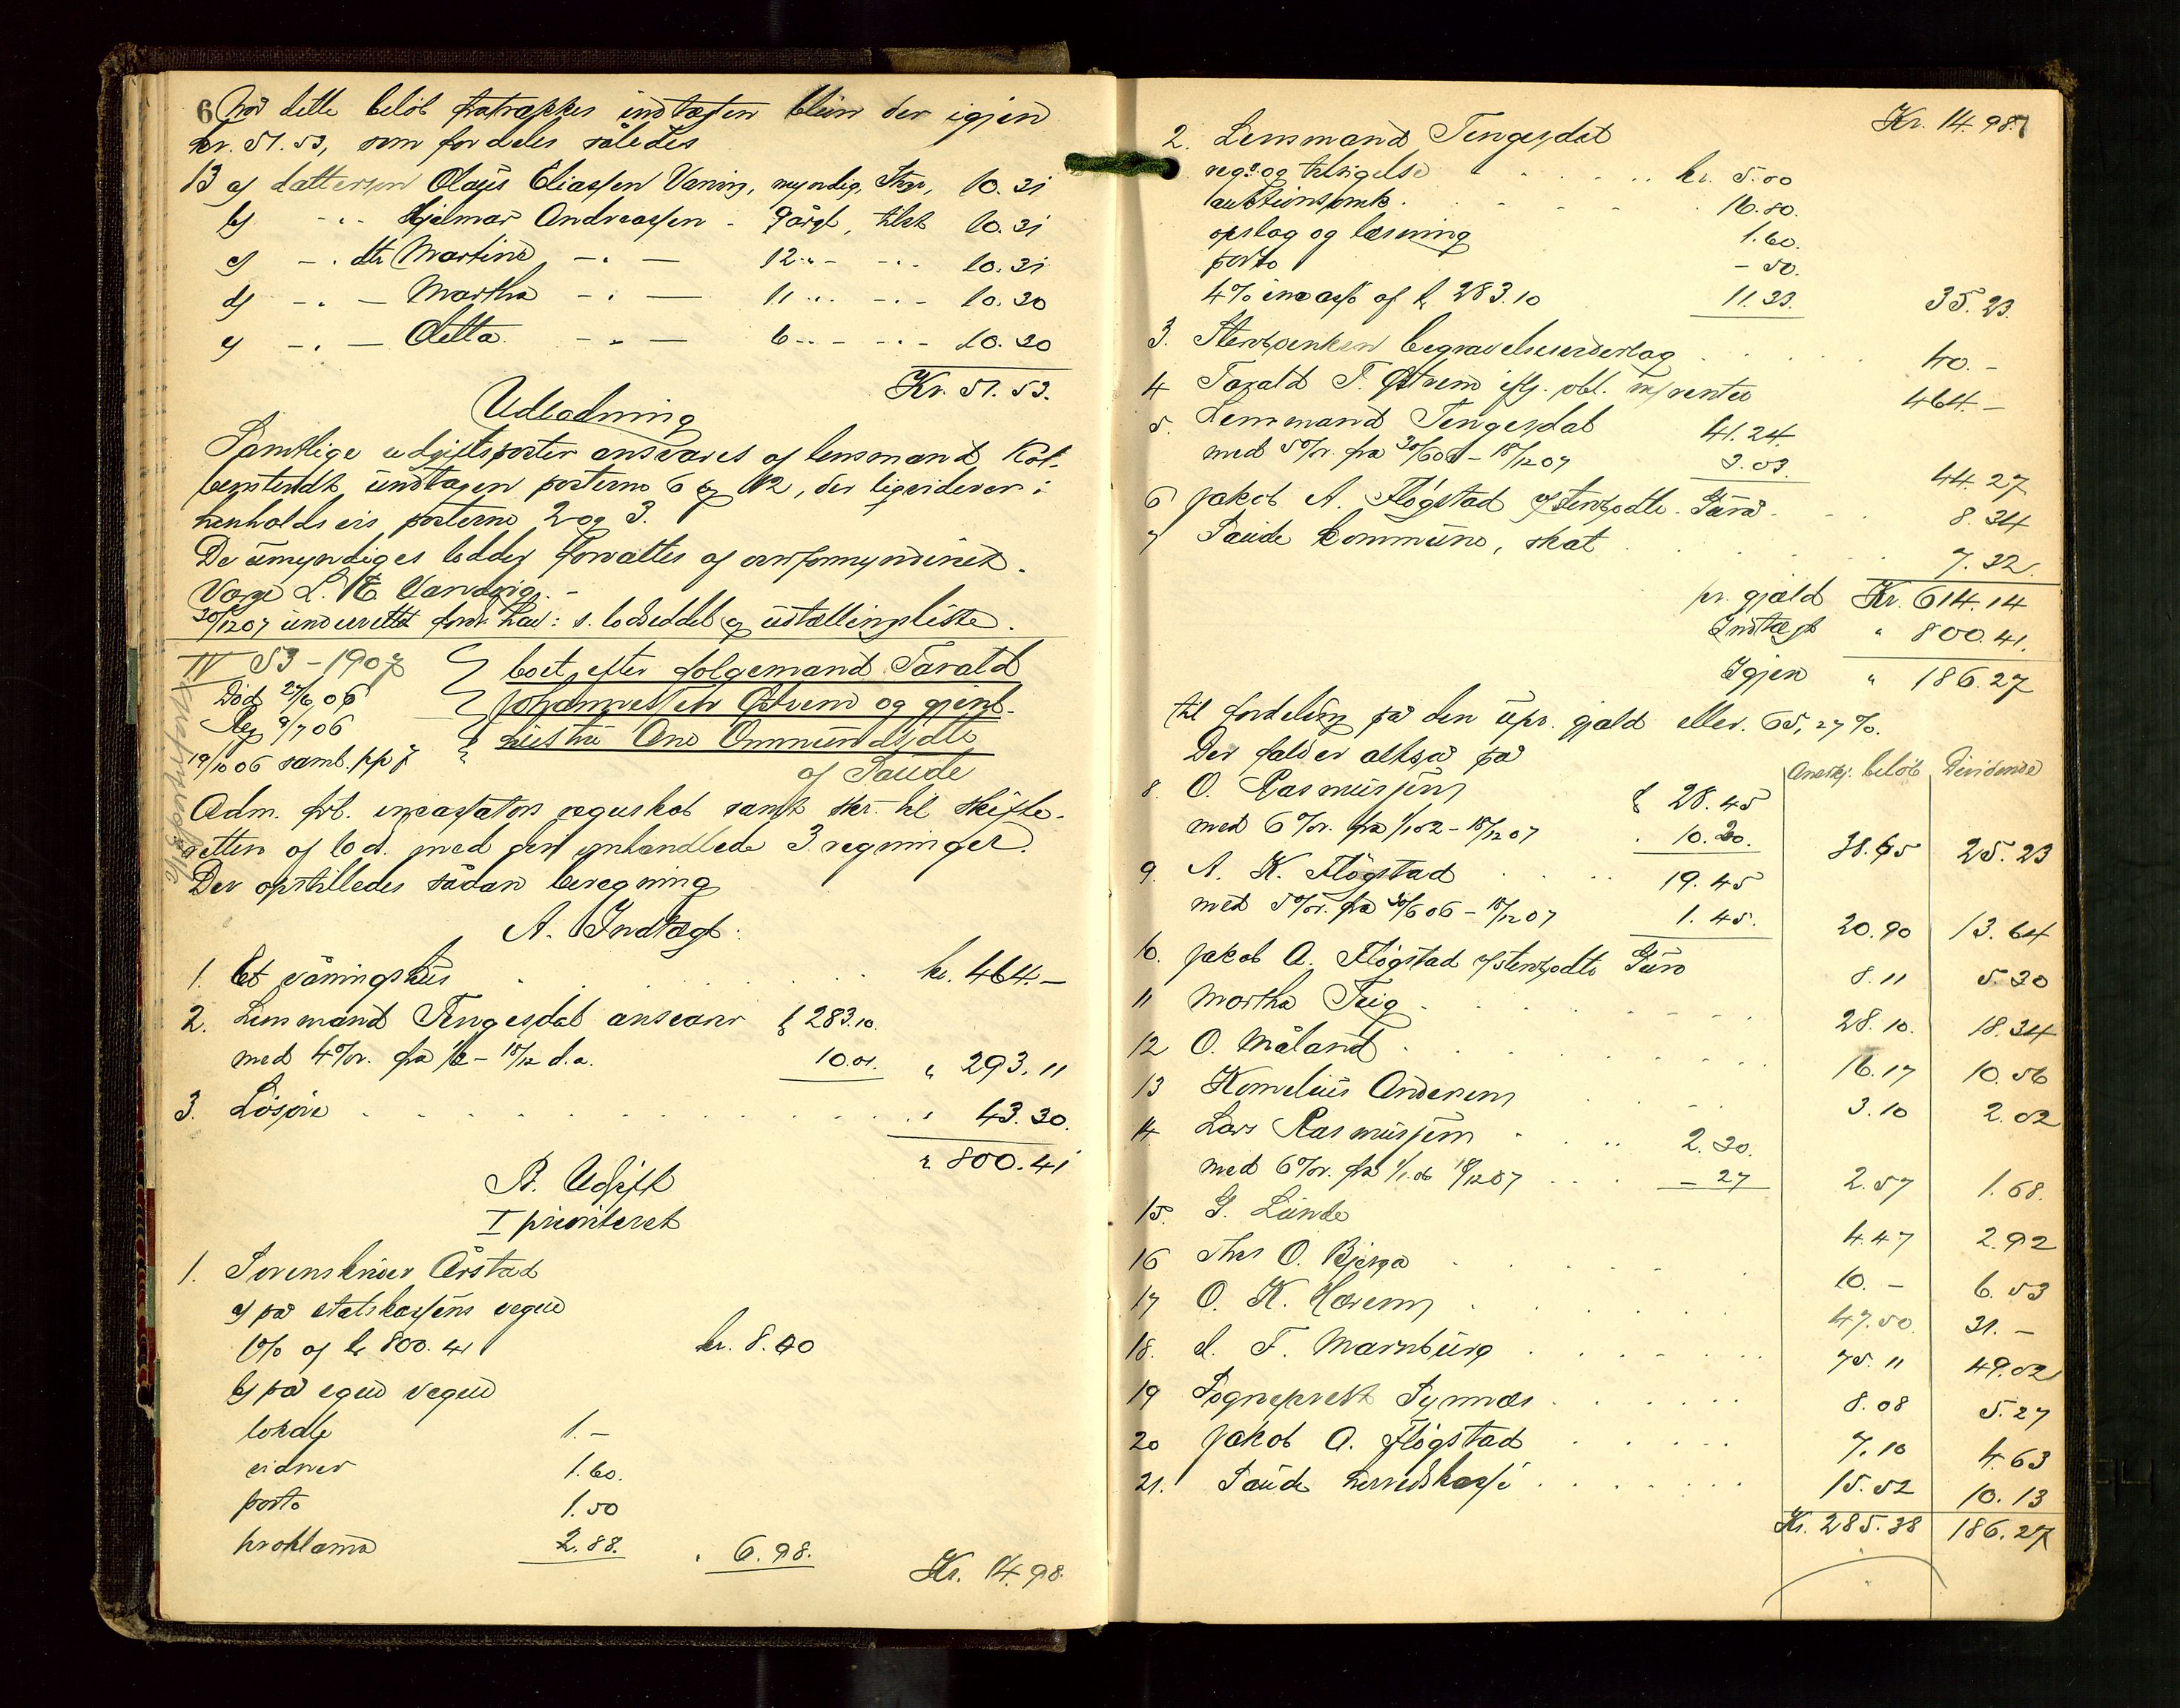 6 Når dette beløb fratrækkes indtægten blir der igjen
kr. 51.53, som fordeles således
13 a) dattersøn Olaus Eliassen Vaning, myndig, 10.31
b) -"- Hjelmar Andreassen - 9 årgl, tilst 10.31
c) -"- dtr Martine -"- 12 -"- 10.31
d) -"- Martha -"- 11 -"- 10.30
e) -"- Detta -"- 6 -"- 10.30
Kr. 51.53.
Udlodning
Samtlige udgiftsposter ansvares af lensmand Kol-
benstvedt undtagen posterne 6 og 12, der ligviderer i
henholdsvis posterne 2 og 3.
De umyndiges lodder forvaltes af overformynderiet.
Værge L. E. Vaning. -
30/12 07 underrettet s. lodseddel og udstællingsliste.
IV 53-1907
Død 27/6 06
Reg 9/7 06
19/10 06 samb. pp f
boet efter folgemand Tarald
Johannessen Østrem og gjenl.
hustru Ane Ommundsdtr
af Saude
Adm. frb. incassators regnskab samt skr. til skifte-
retten af 6 d. med deri omhandlede 3 regninger.
Der opstilledes sådan beregning
A. Indtægt:
1. Et våningshus kr. 464.-
2. Lensmand Tengesdal ansvarer kr 283.10.
med 4% r. fra 1/2 - 18/12 d.a. 10.01. " 293.11
3. Løsøre " 43.30.
" 800.41
B. Udgift
I prioriteret
1. Sorenskriver Årstad
a) på statskassens vegne
1% af kr 800.41 kr. 8.00
b) på egne vegne
lokale 1.-
vidner 1.60.
porto 1.50
proklama 2.88. " 6.98.
Kr. 14.98.
Kr. 14.98. 7
2. Lensmand Tengesdal
reg. og tilsigelse kr. 5.00
auktionsomk. 16.80.
opslag og læsning 1.60.
porto - 50.
4% incasso af kr 283.10 11.33. 35.23.
3. Stervboenken begravelsesvederlag 40.-
4 Tarald T. Østrem iflg. obl. m/renter 464.-
5. Lensmand Tengesdal 41.24.
med 5% r. fra 30/6 06 - 18/12 07 3.03. 44.27
6 Jakob A. Fløgstad f/stervbodtr. Guro 8.34
7 Saude kommune, skat 7.32.
pr. gjæld Kr. 614.14
Indtægt " 800.41.
Igjen " 186.27
til fordeling på den upr. gjæld eller. 65,27%.
Der falder altså på
Anerkj. beløb Dividende
8. O. Rasmussen kr 28.45
med 6% r. fra 1/1 02 - 18/12 07 " 10.20. 38.65 25.23
9. A. K. Fløgstad 19.45
med 5% r. fra 30/6 06 - 18/12 07 1.45. 20.90 13.64
10. Jakob A. Fløgstad f/stervbodtr Guro 8.11 5.30
11 Martha Teig 28.10. 18.34
12 O. Måland 16.17 10.56
13 Kornelius Andersen 3.10 2.02
14 Lars Rasmussen 2.30.
med 6% r. fra 1/1 06 18/12 07 - 27 2.57 1.68.
15. G. Lunde 4.47 2.92
16 Ths O. Bjerga 10.- 6.53
17 O. K. Havem 47.50 31.-
18. I. F. Marnburg 75.11 49.02
19 Sogneprest Synnæs 8.08 5.27
20 Jakob A. Fløgstad 7.10 4.63
21. Saude herredskasse 15.52 10.13
Kr. 285.38 186.27